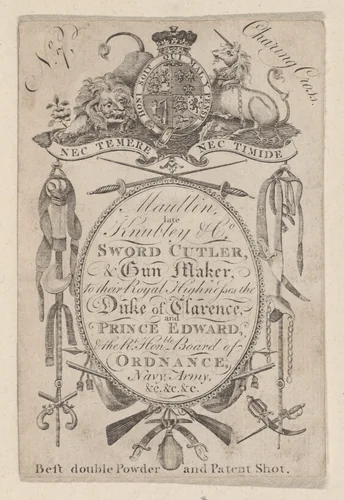 No. 7.
Charing Cross.
HONI SOIT QUI MAL Y PENSE
NEC TEMERE NEC TIMIDE
Maullin,
late
Knubley & Co.
SWORD CUTLER,
& Gun Maker,
to their Royal Highnesses the
Duke of Clarence,
and
PRINCE EDWARD,
& the Rt. Honble. Board of
ORDNANCE,
Navy, Army,
&c. &c. &c.
Best double Powder and Patent Shot.